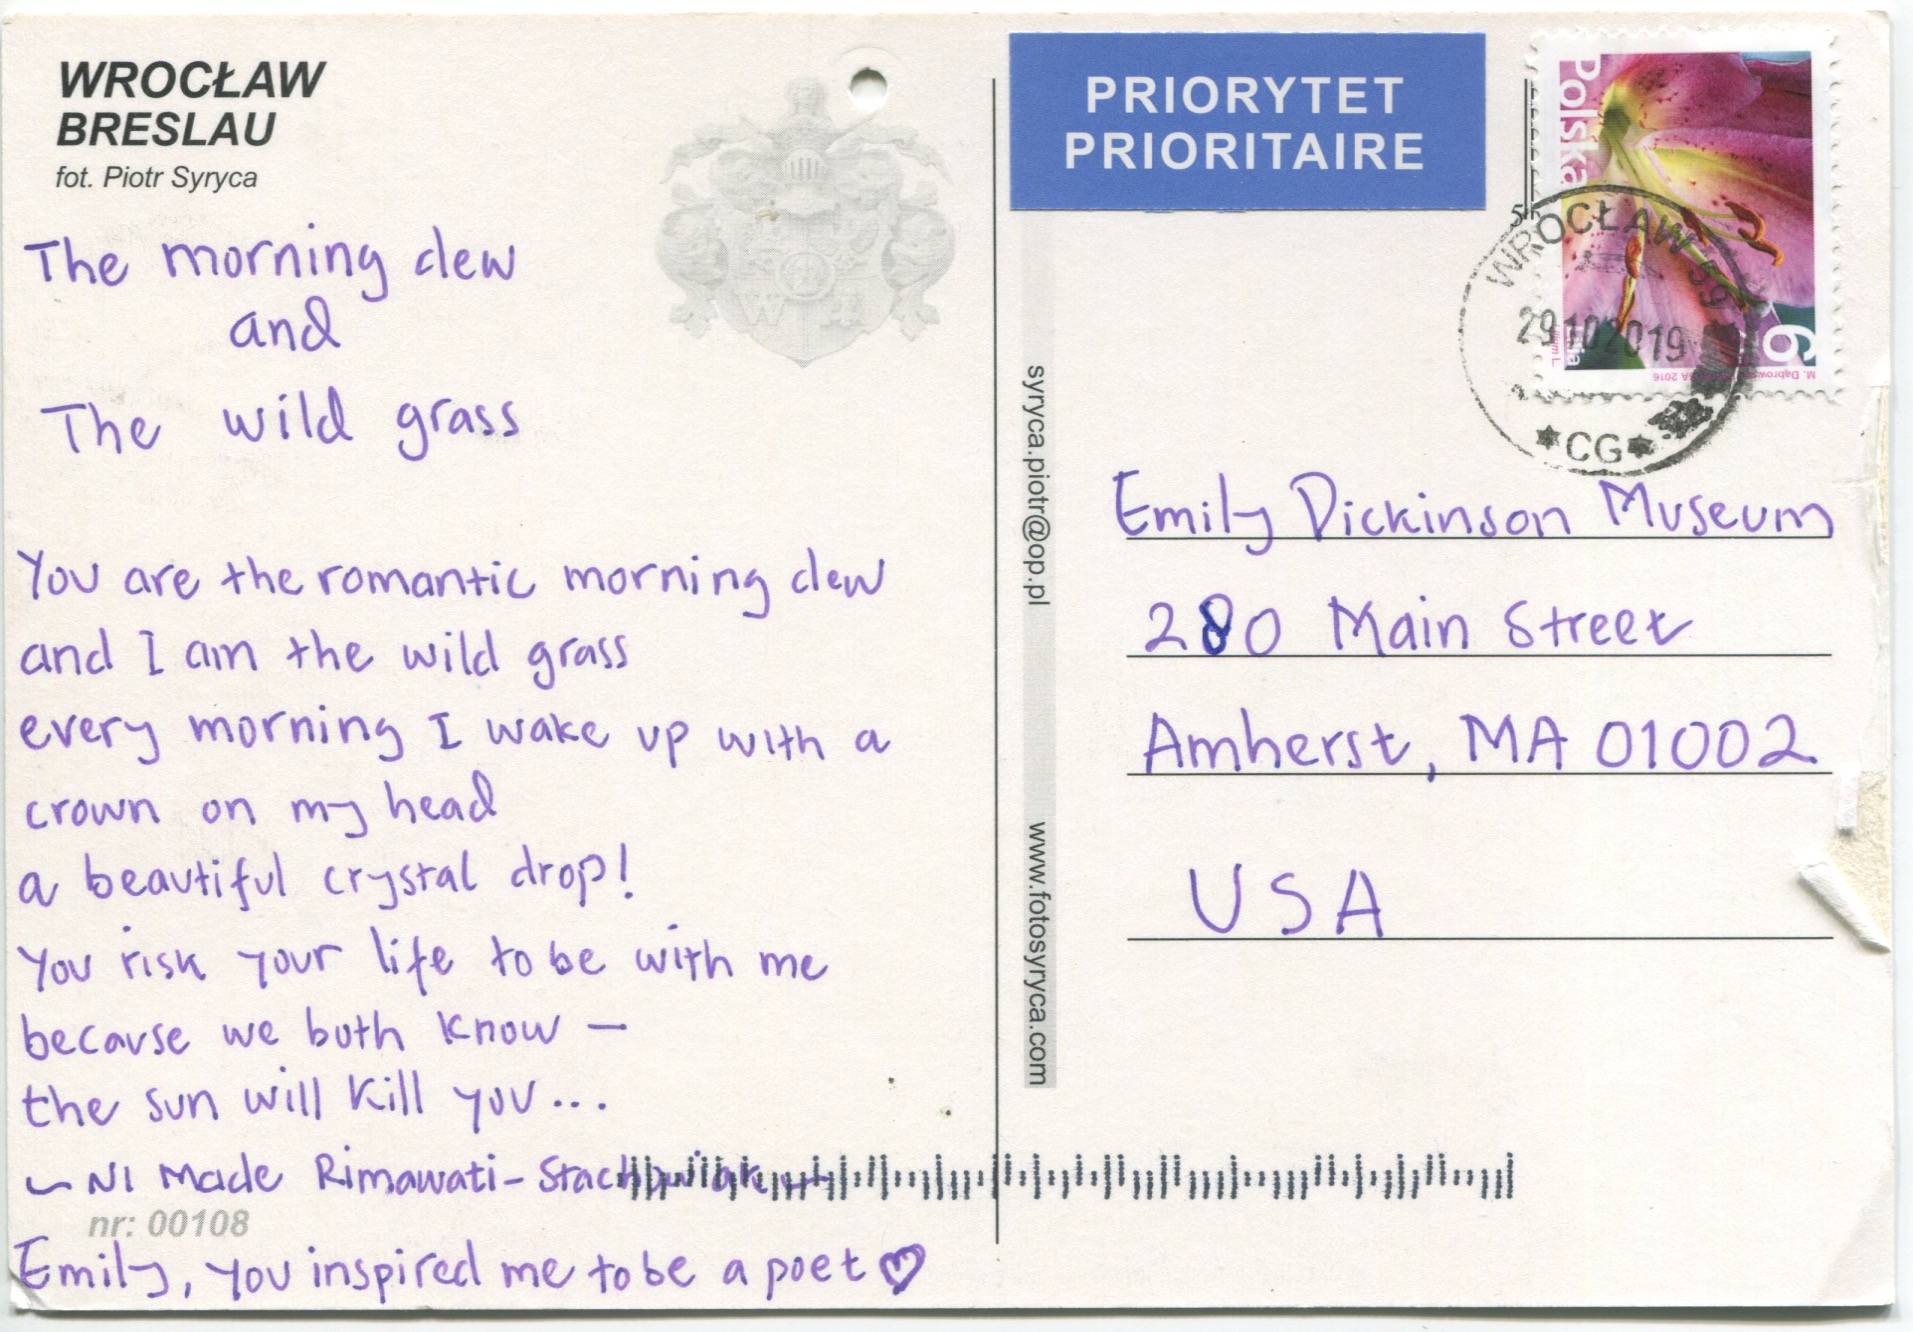 WROCŁAW
BRESLAU
fot. Piotr Syryca
The morning dew
and
The wild grass
You are the romantic morning dew
and I am the wild grass
every morning I wake up with a
crown on my head
a beautiful crystal drop!
You risk your life to be with me
because we both know —
the sun will kill you...
~ NI Made Rimawati-Stachowiak ~
nr: 00108
Emily, you inspired me to be a poet ♡
syryca.piotr@op.pl
www.fotosyryca.com
PRIORYTET
PRIORITAIRE
Polska
6
WROCŁAW 59
29102019
*CG*
Emily Dickinson Museum
280 Main Street
Amherst, MA 01002
USA